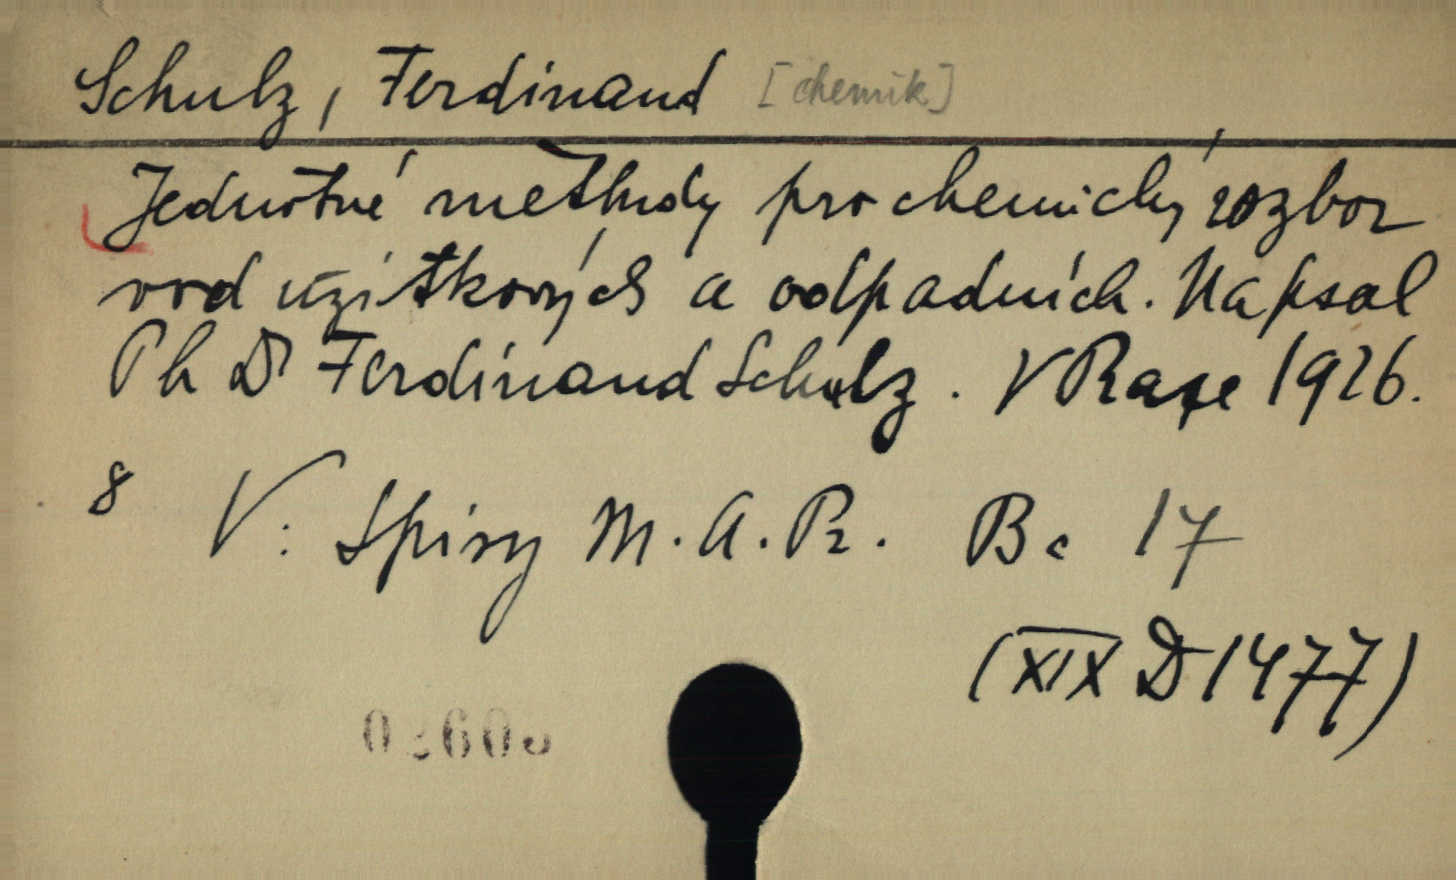 Schulz, Ferdinand [chemik]
Jednotné methody pro chemický rozbor
vod užitkových a odpadních. Napsal
Ph Dr Ferdinand Schulz. V Praze 1926.
8 V: Spisy M. A. Pr. Bc 17
(XIX D 1477)